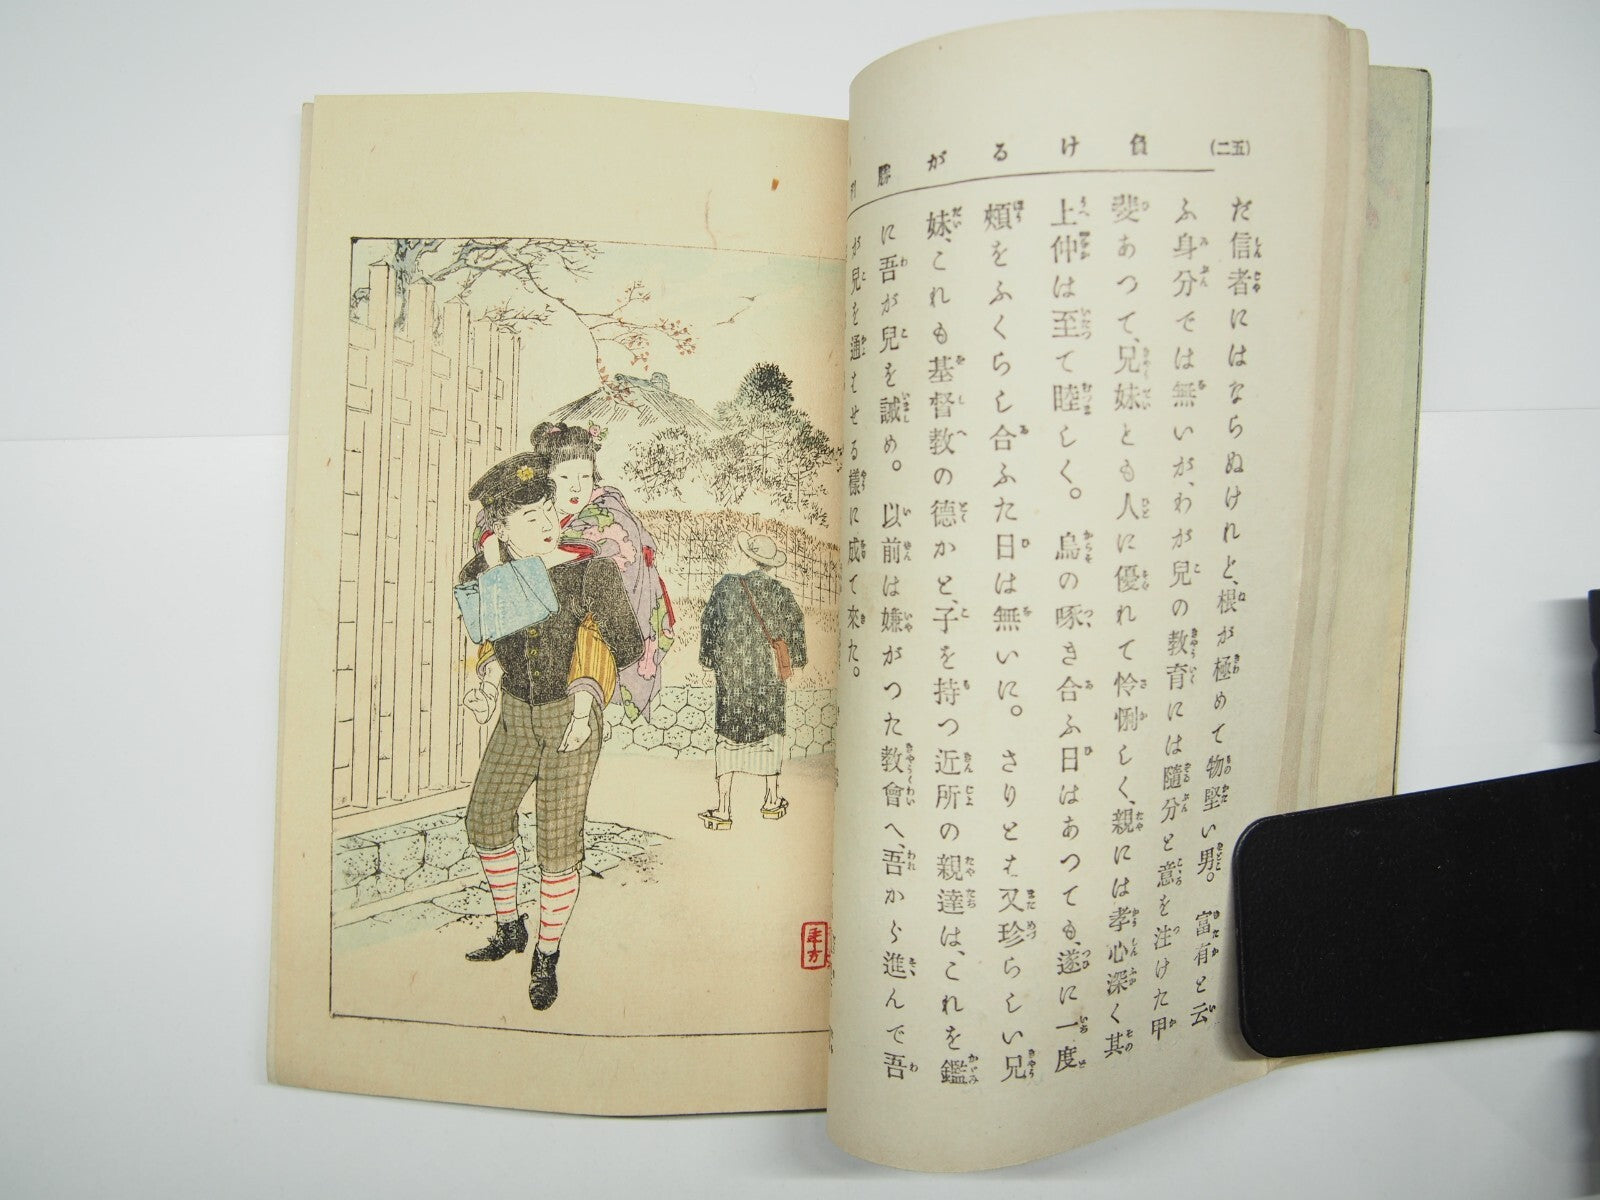 (二五)
負けるが勝利
だ信者にはならぬけれど、根が極めて物堅い男。富有と云
ふ身分では無いが、わが兒の教育には隨分と意を注けた甲
斐あつて、兄妹とも人に優れて怜悧しく、親には孝心深く其
上仲は至て睦しく。烏の啄き合ふ日はあつても、遂に一度
頬をふくらし合ふた日は無いに。さりとは又珍らしい兄
妹、これも基督教の德かと、子を持つ近所の親達は、これを鑑
に吾が兒を誡め。以前は嫌がつた教會へ、吾から進んで吾
が兒を通はせる樣に成て來た。
年方